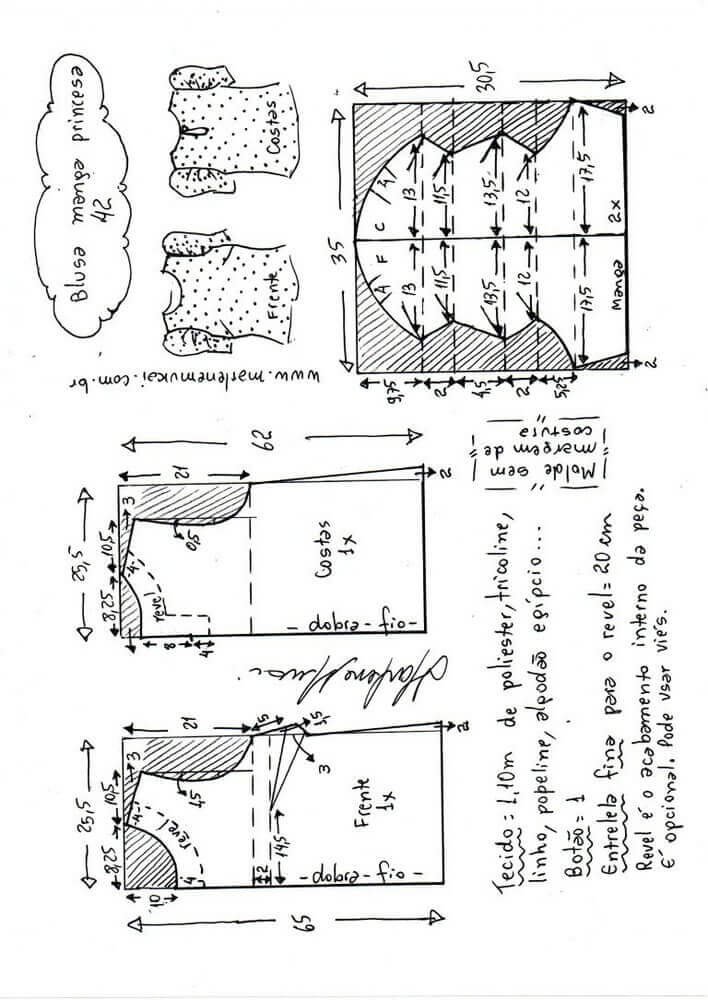 Blusa manga princesa
42
Frente
Costas
www.marlenemukai.com.br
35
30,5
A
F
C
A
13
13
11,5
11,5
13,5
13,5
12
12
17,5
17,5
Manga
2x
9,75
2
4,5
2
5,25
2
2
25,5
8,25
10,5
3
4
21
62
0,5
revel
8
4
Costas
1x
- dobra - fio -
2
Molde sem
margem de
costura
25,5
8,25
10,5
3
4
21
65
10
1,5
revel
4
5
1,5
3
2
14,5
Frente
1x
- dobra - fio -
2
Tecido = 1,10m de poliester, tricoline,
linho, popeline, algodão egípcio...
Botão = 1
Entretela fina para o revel = 20 cm
Revel é o acabamento interno da peça.
É opcional. Pode usar viés.